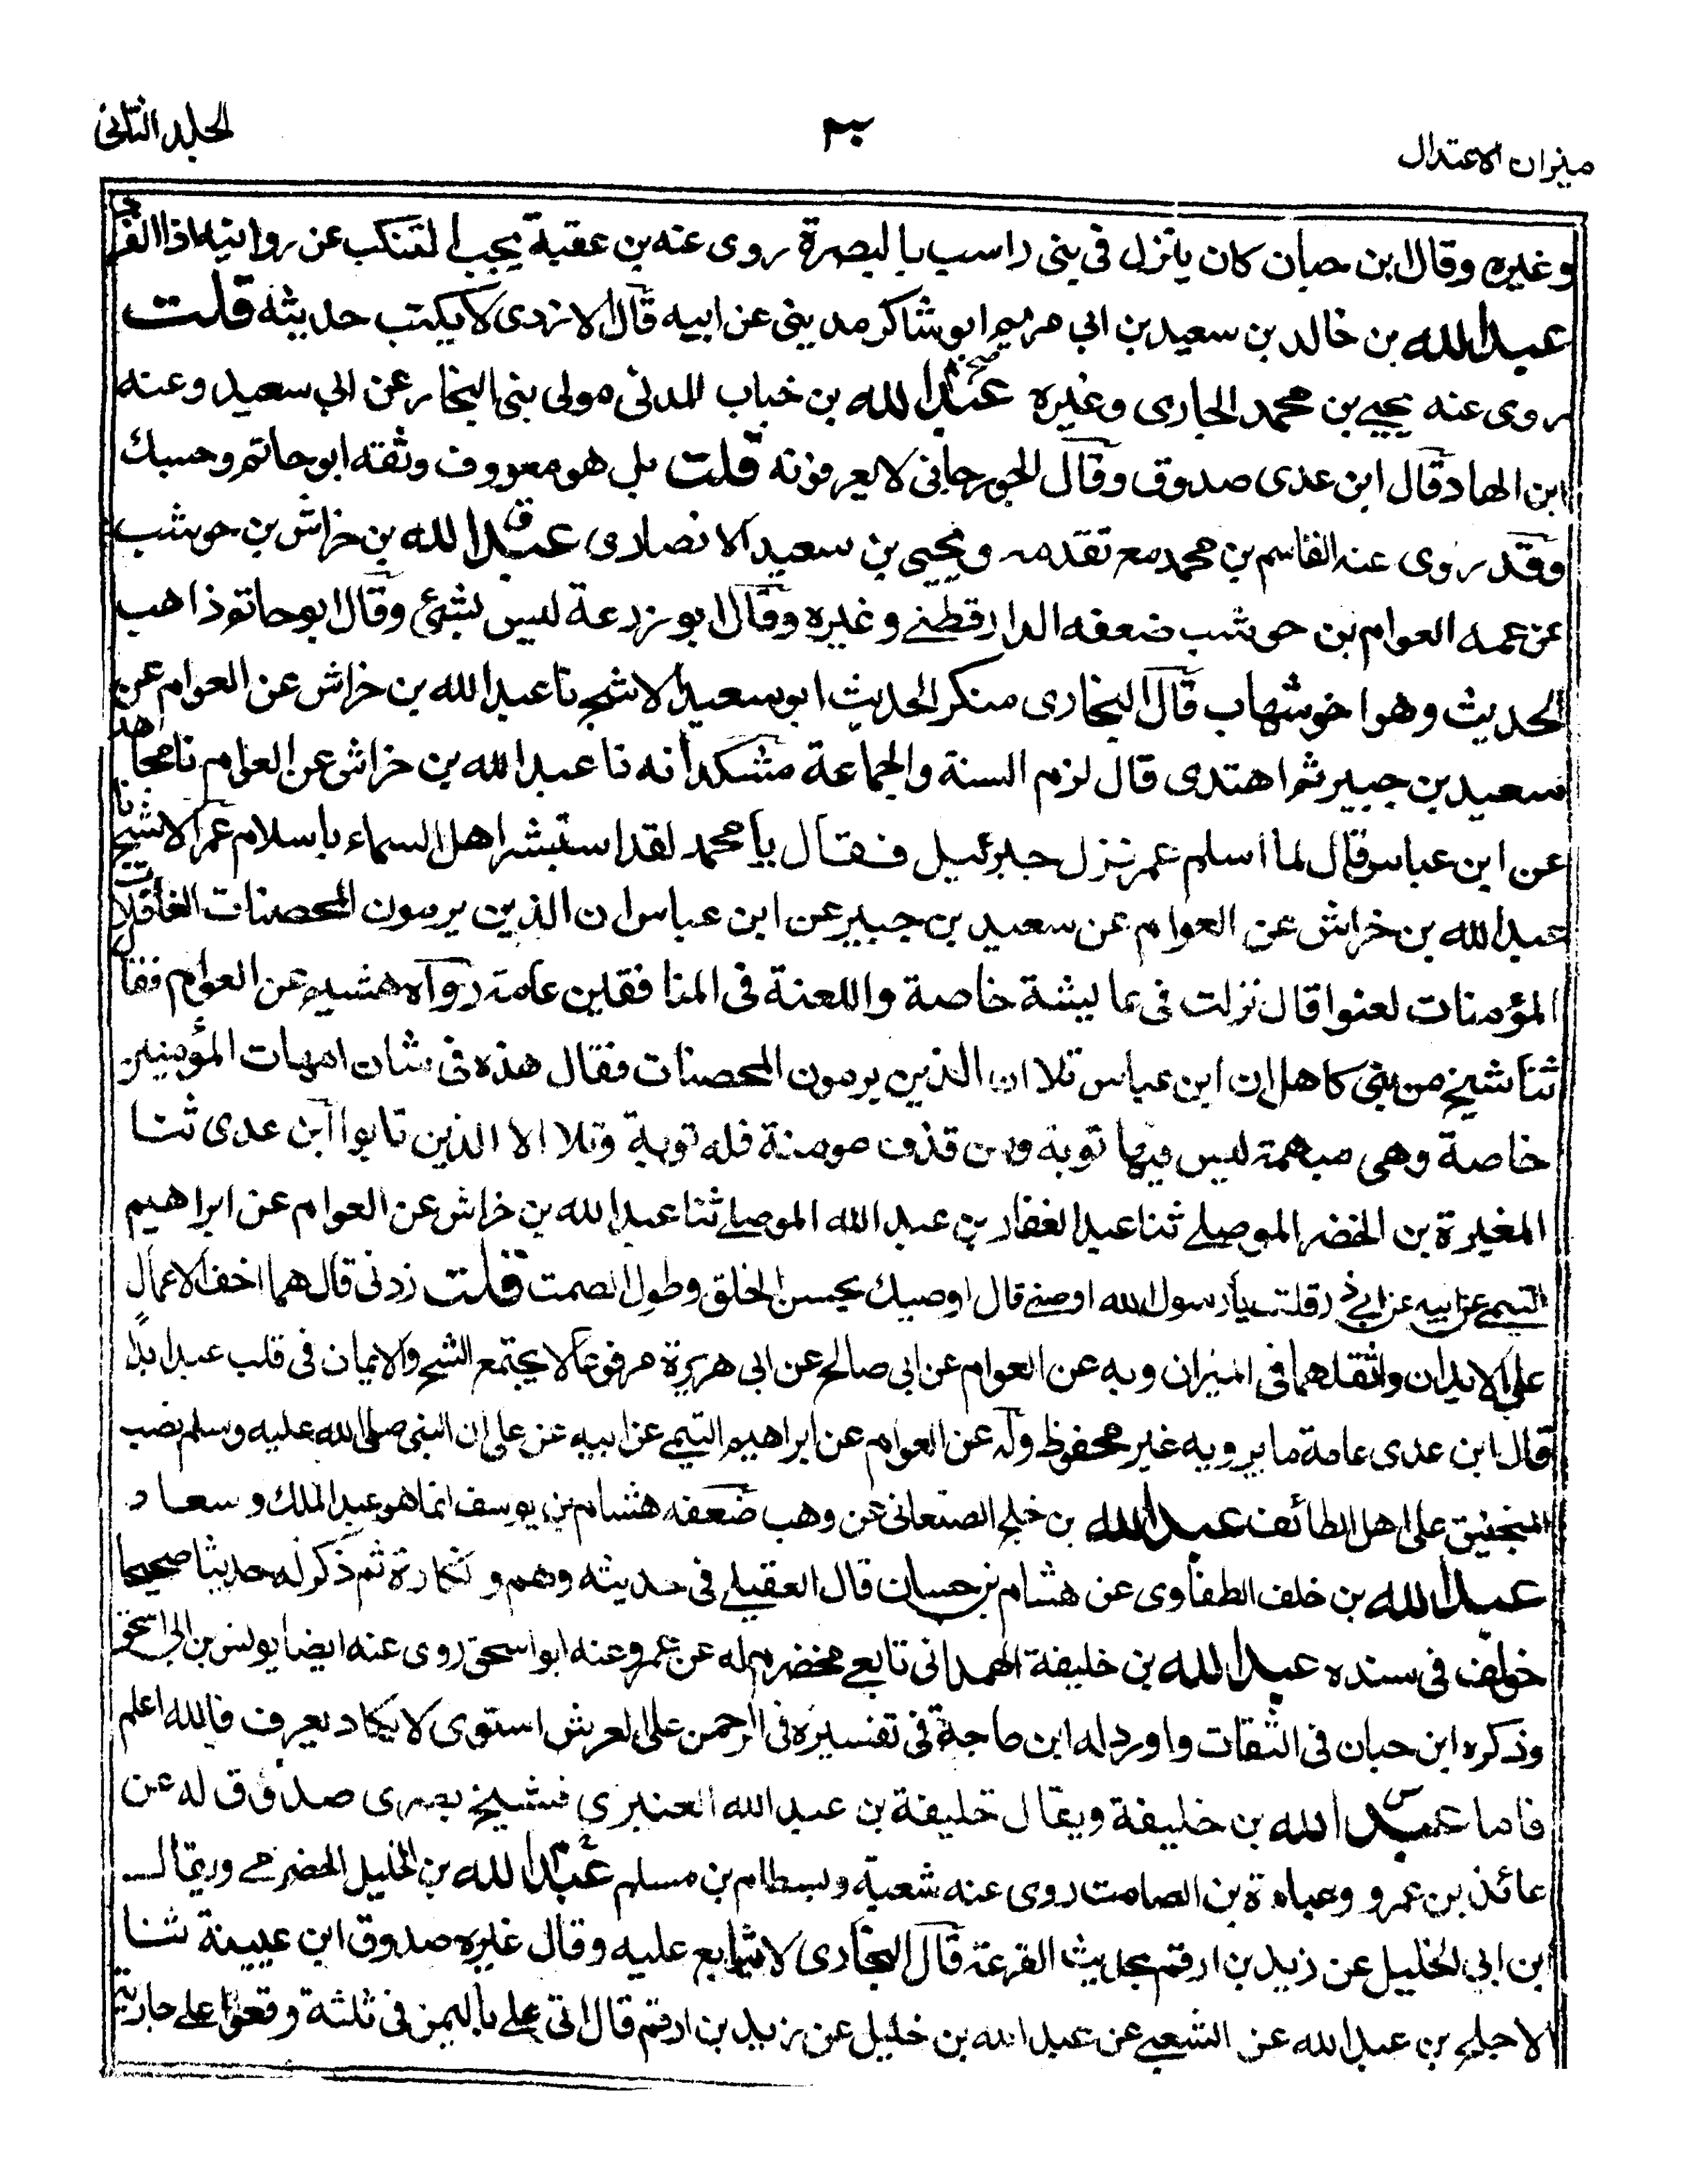 ميزان الاعتدال
٣٠
الجلد الثانی
وغيره وقال ابن حبان كان ينزل فی بنی راسب بالبصرة روى عنه بن عقبة يجب التنكب عن رواياته اذا انفرد
عبد الله بن خالد بن سعيد بن ابی مريم ابو شاكر مدينی عن ابيه قال الازدی لا يكتب حديثه قلت
روى عنه يحيى بن محمد الجاری وغيره عبد الله بن خباب المدنی مولى بنی النجار عن ابی سعيد وعنه
ابن الهاد قال ابن عدی صدوق وقال الجوزجانی لا يعرفونه قلت بل هو معروف وثقه ابو حاتم وحسبك
وقد روى عنه القاسم بن محمد مع تقدمه ويحيى بن سعيد الانصاری عبد الله بن خراش بن حوشب
عن عمه العوام بن حوشب ضعفه الدارقطنے وغيره وقال ابو زرعة ليس بشئ وقال ابو حاتم ذاهب
الحديث وهو اخو شهاب قال البخاری منكر الحديث ابو سعيد الاشج نا عبد الله بن خراش عن العوام عن
سعيد بن جبير ثم اهتدى قال لزم السنة والجماعة مشكدانه نا عبد الله بن خراش عن العوام نا مجاهد
عن ابن عباس قال لما اسلم عمر نزل جبرئيل فقال يا محمد لقد استبشر اهل السماء باسلام عمر الاشج نا
عبد الله بن خراش عن العوام عن سعيد بن جبير عن ابن عباس ان الذين يرمون المحصنات الغافلات
المؤمنات لعنوا قال نزلت فی عايشة خاصة واللعنة فی المنافقين عامة رواه هشيم عن العوام فقال
ثنا شيخ من بنی كاهل ان ابن عباس تلا ان الذين يرمون المحصنات فقال هذه فی شان امهات المؤمنين
خاصة وهی مبهمة ليس فيها توبة ومن قذف مومنة فله توبة وتلا الا الذين تابوا ابن عدی ثنا
المغيرة بن الخضر الموصلے ثنا عبد الغفار بن عبد الله الموصلے ثنا عبد الله بن خراش عن العوام عن ابراهيم
التيمی عن ابيه عن ابی ذر قلت يا رسول الله اوصنے قال اوصيك بحسن الخلق وطول الصمت قلت زدنی قال هما اخف الاعمال
على الابدان واثقلهما فی الميزان وبه عن العوام عن ابی صالح عن ابی هريرة مرفوعا لا يجتمع الشح والايمان فی قلب عبد ابدًا
قال ابن عدی عامة ما يرويه غير محفوظ وله عن العوام عن ابراهيم التيمی عن ابيه عن علی ان النبی صلى الله عليه وسلم نصب
المنجنيق على اهل الطائف عبد الله بن خلج الصنعانی عن وهب ضعفه هشام بن يوسف انما هو عبد الملك وسعاد
عبد الله بن خلف الطفاوی عن هشام بن حسان قال العقيلے فی حديثه وهم ونكارة ثم ذكر له حديثا صحيحا
خولف فی سنده عبد الله بن خليفة الهمدانی تابعے مخضرم له عن عمر وعنه ابو اسحق روى عنه ايضا يونس بن ابی اسحق
وذكره ابن حبان فی الثقات واورد له ابن ماجة فی تفسيره فی الرحمن على العرش استوى لا يكاد يعرف فالله اعلم
فاما عبد الله بن خليفة ويقال خليفة بن عبد الله العنبری فشيخ بصری صدوق له عن
عائذ بن عمرو وعبادة بن الصامت روى عنه شعبة وبسطام بن مسلم عبد الله بن الخليل الحضرمے ويقال
ابن ابی الخليل عن زيد بن ارقم بحديث القرعة قال البخاری لا يتابع عليه وقال غيره صدوق ابن عيينة ثنا
الاجلح بن عبد الله عن الشعبے عن عبد الله بن خليل عن زيد بن ارقم قال اتی علی باليمن فی ثلثة وقعوا علے جارية